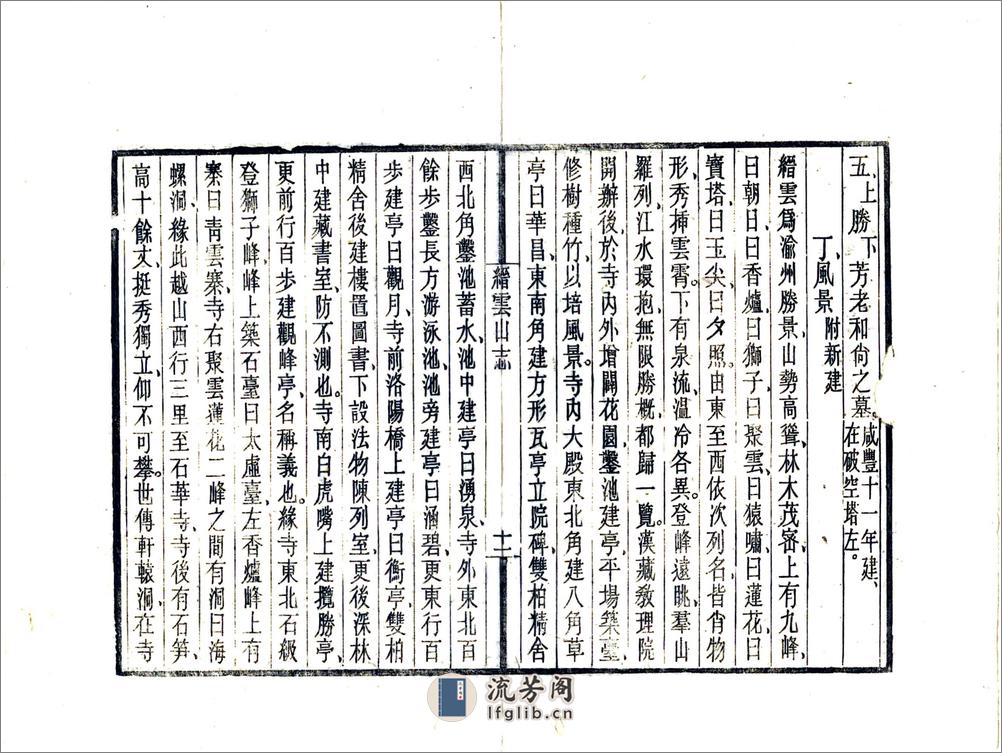 五、上勝下芳老和尚之墓。咸豐十一年建、在破空塔左。
丁、風景 附新建
縉雲爲渝州勝景、山勢高聳、林木茂密、上有九峰、
曰朝日、曰香爐、曰獅子、曰聚雲、曰猿嘯、曰蓮花、曰
寶塔、曰玉尖、曰夕照。由東至西依次列名、皆肖物
形、秀揷雲霄。下有泉流、温冷各異。登峰遠眺、羣山
羅列、江水環抱、無限勝概、都歸一覽。漢藏敎理院
開辦後、於寺內外增闢花園、鑿池建亭、平場築臺、
修樹種竹、以培風景。寺內大殿東北角建八角草
亭曰華昌、東南角建方形瓦亭立院碑、雙柏精舍
縉雲山志
十二
西北角鑿池蓄水、池中建亭曰湧泉、寺外東北百
餘步鑿長方游泳池、池旁建亭曰涵碧、更東行百
步建亭曰觀月、寺前洛陽橋上建亭曰衙亭、雙柏
精舍後建樓、置圖書、下設法物陳列室、更後深林
中建藏書室、防不測也。寺南白虎嘴上建攬勝亭、
更前行百步建觀峰亭、名稱義也。緣寺東北石級
登獅子峰、峰上築石臺曰太虛臺、左香爐峰上有
寨曰靑雲寨、寺右聚雲蓮花二峰之間有洞曰海
螺洞、緣此越山西行三里至石華寺、寺後有石笋、
高十餘丈、挺秀獨立、仰不可攀。世傳軒轅洞在寺
流芳阁
lfglib.cn